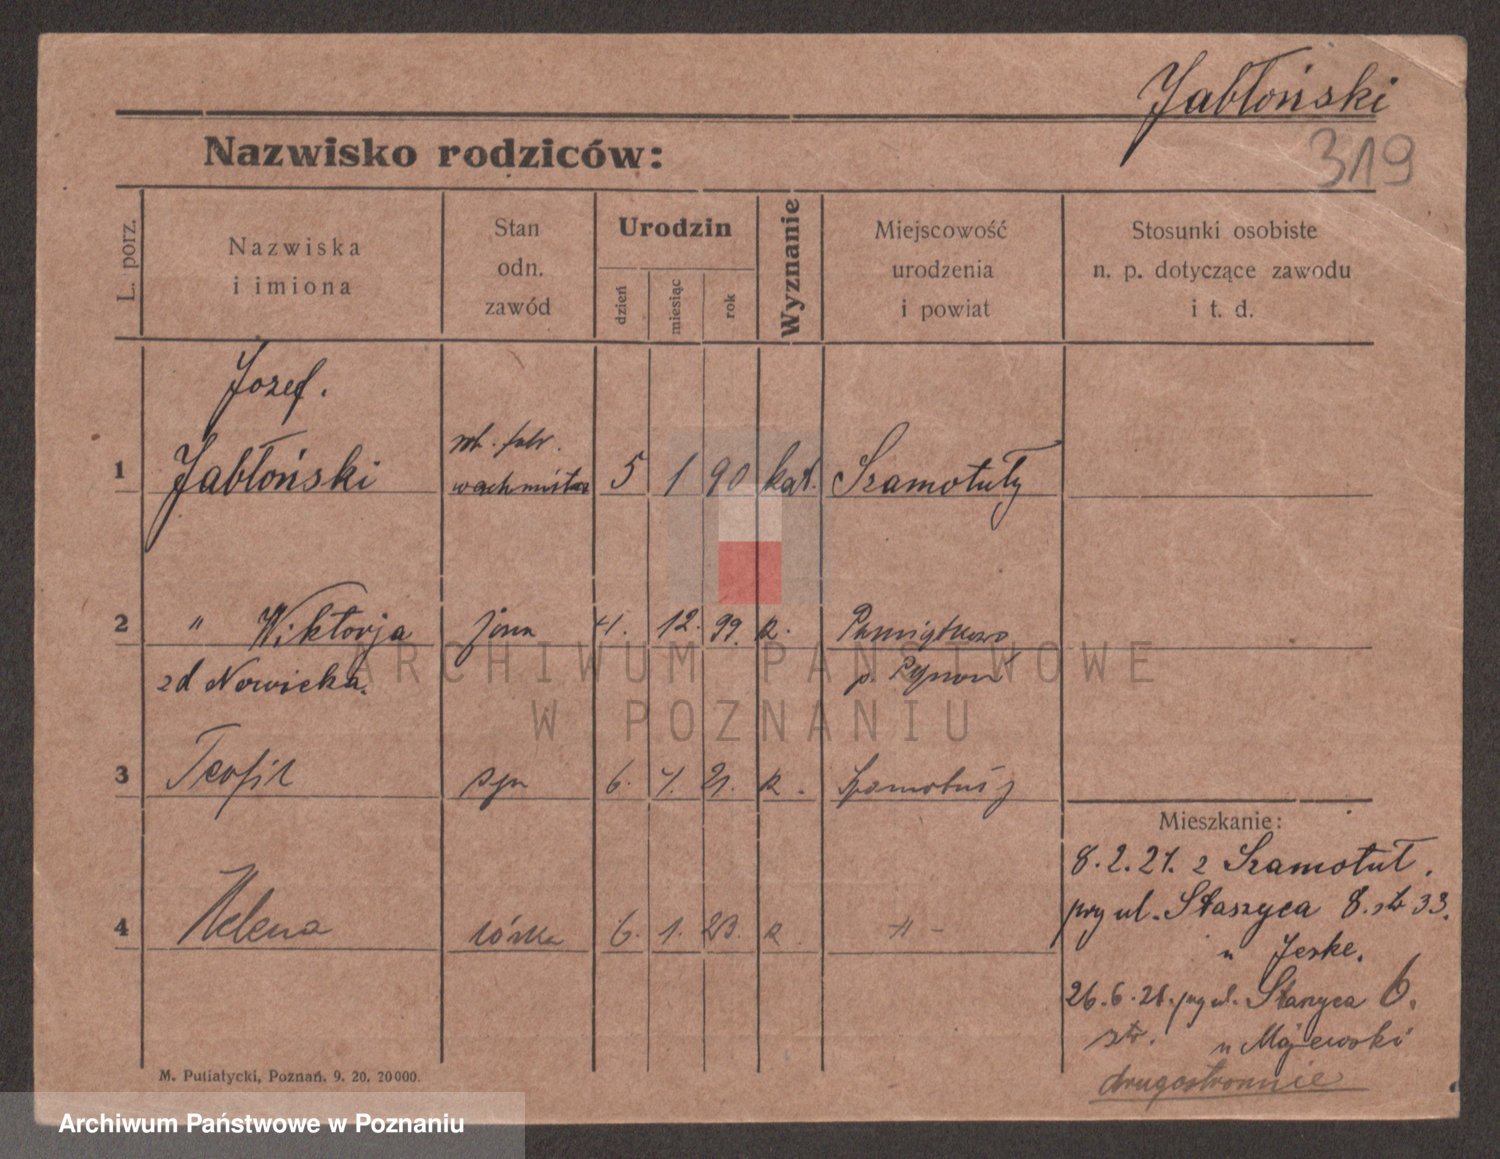 Jabłoński
319
Nazwisko rodziców:
L. porz.
Nazwiska
i imiona
Stan
odn.
zawód
Urodzin
dzień
miesiąc
rok
Wyznanie
Miejscowość
urodzenia
i powiat
Stosunki osobiste
n. p. dotyczące zawodu
i t. d.
Jozef.
1 Jabłoński wachmistrz 5 1 90 kat. Szamotuły
2 " Wiktorja żona 4. 12. 99. k. Pamiątkowo
zd Nowicka.
3 Teofil syn 6. 21. k. Szamotuły
4 Helena córka 6. 1. 23. k. -"-
Mieszkanie:
8.2.21. z Szamotuł.
przy ul. Staszyca 8. str 33.
u Jeske.
26.6.21. przy ul. Staszyca 6.
str. u Majewski
drugostronnie
M. Putiatycki, Poznań. 9. 20. 20000.
ARCHIWUM PAŃSTWOWE
W POZNANIU
Archiwum Państwowe w Poznaniu